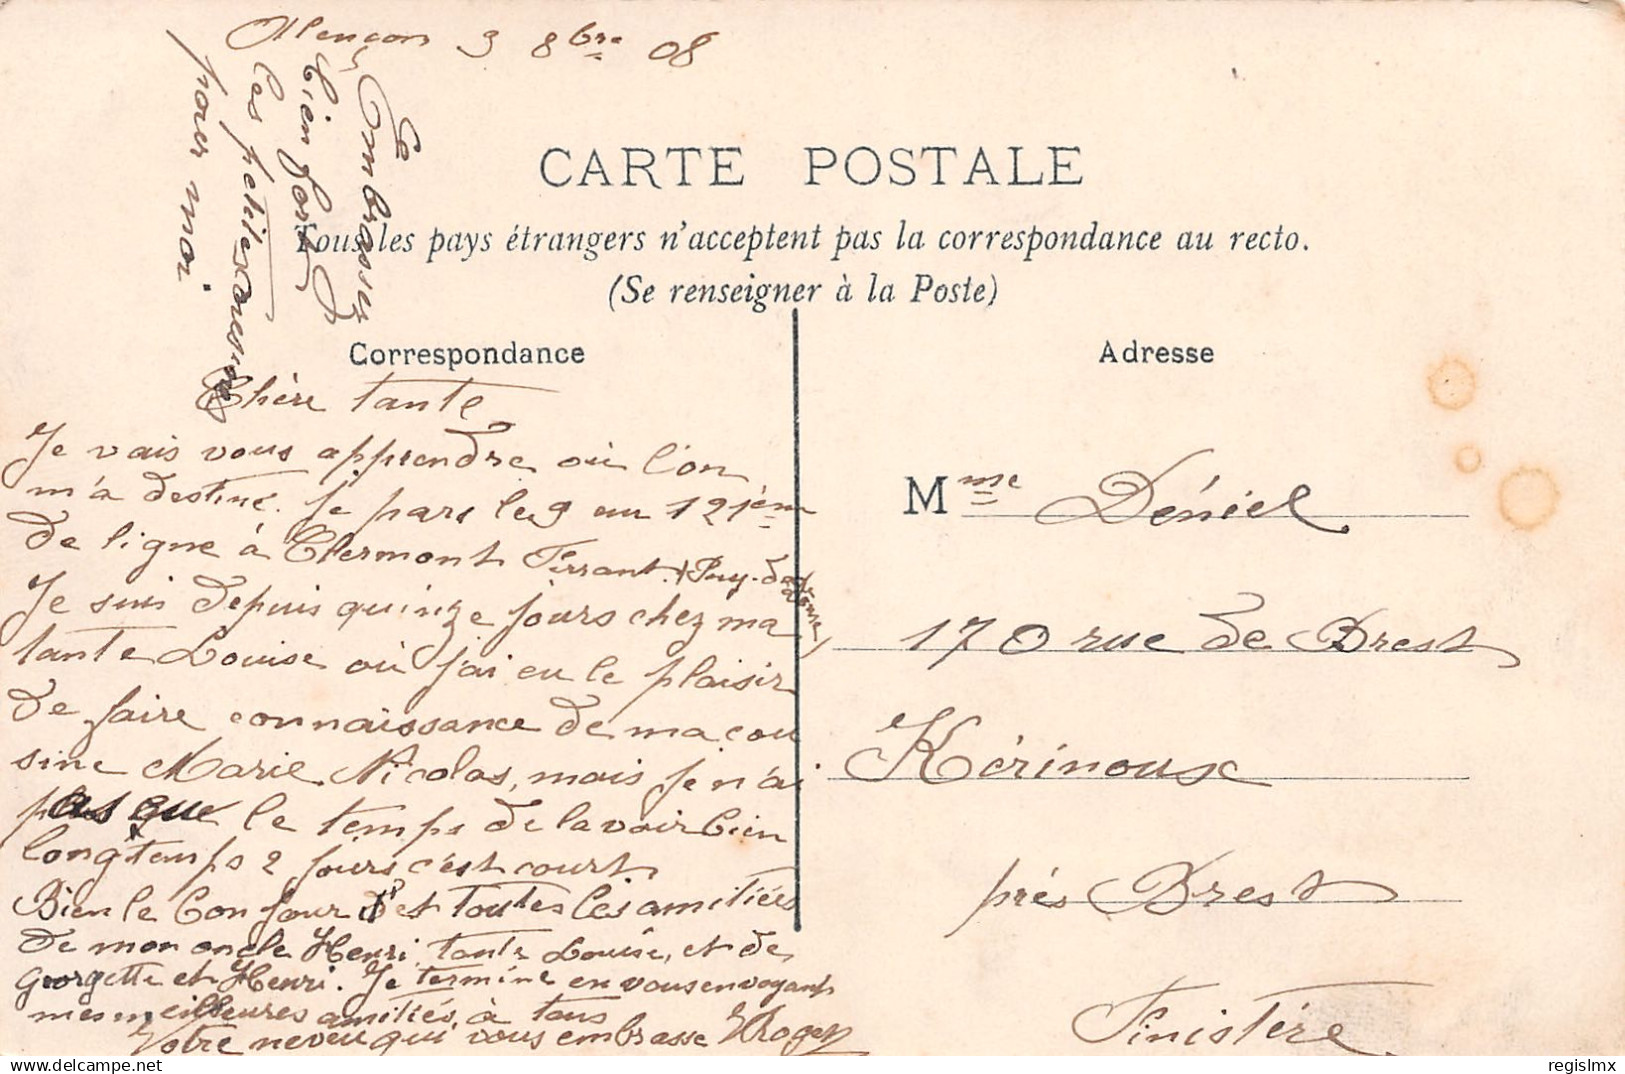 Alençon 3 8bre 08
Embrasser
bien fort
les petites
pour moi
CARTE POSTALE
Tous les pays étrangers n'acceptent pas la correspondance au recto.
(Se renseigner à la Poste)
Correspondance
Adresse
Chère tante
Je vais vous apprendre où l'on
m'a destiné. Je pars le 9 au 121ème
de ligne à Clermont Ferrant. (Puy-de
Dôme)
Je suis depuis quinze jours chez ma
tante Louise où j'ai eu le plaisir
de faire connaissance de ma cou
sine Marie Nicolas, mais je n'ai
pas que le temps de la voir bien
longtemps 2 jours c'est court
Bien le bonjour et toutes les amitiées
de mon oncle Henri, tante Louise, et de
Georgette et Henri. Je termine en vous envoyant
mes meilleures amitiés à tous
Votre neveu qui vous embrasse Roger
Mme Déniel
170 rue de Brest
Kérinoux
près Brest
Finistère
regislmx